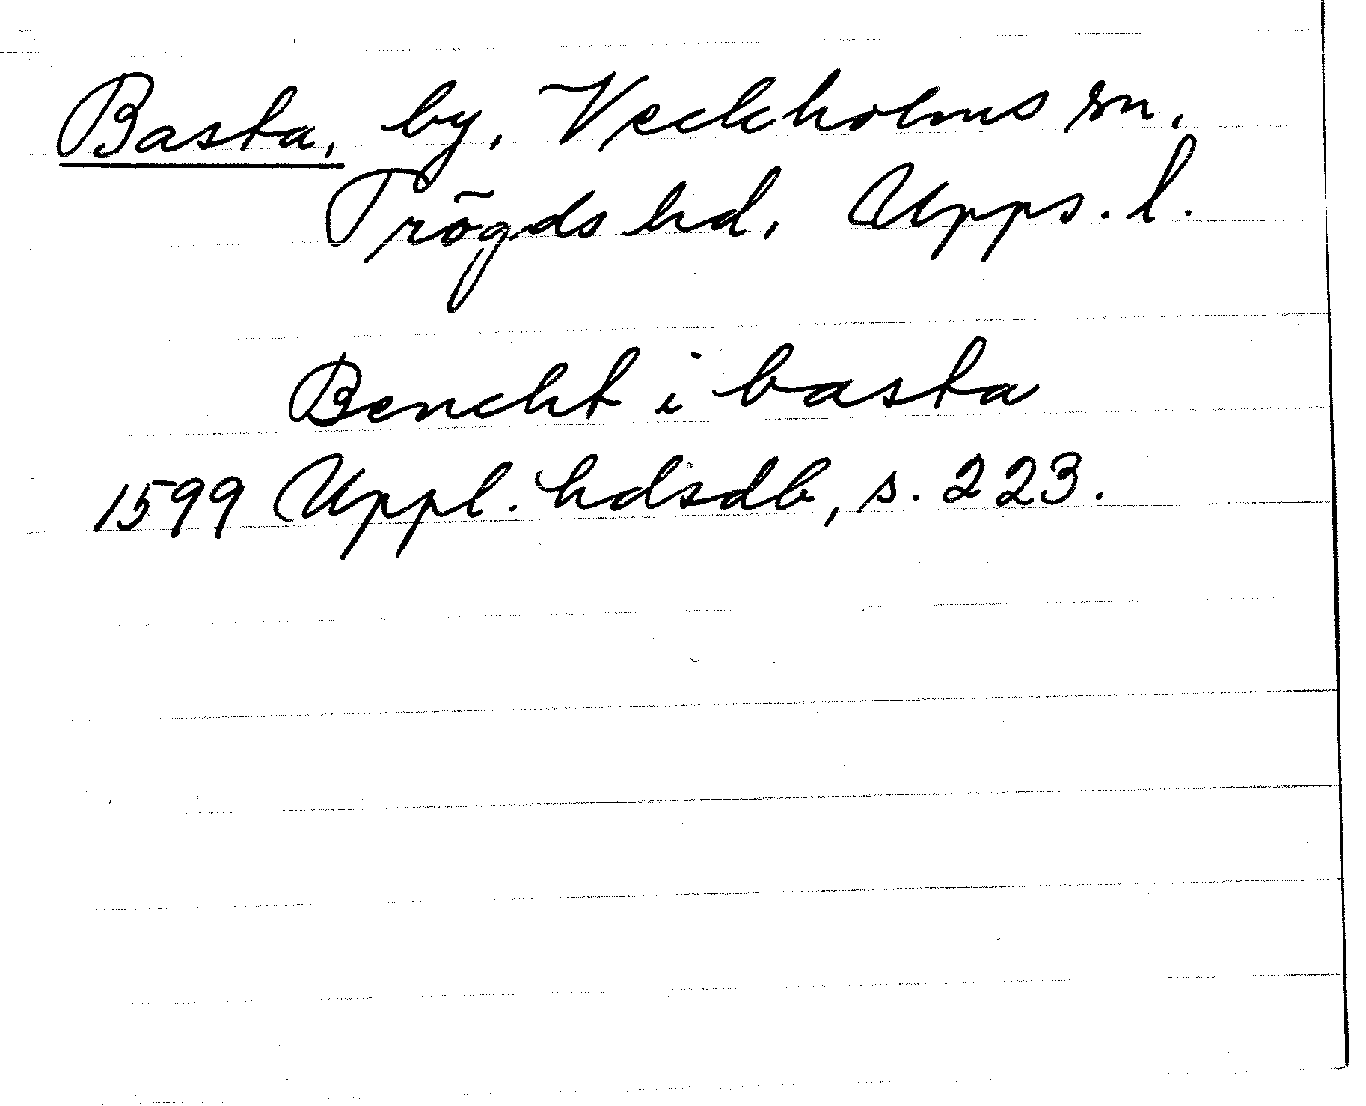 Basta, by, Veckholms sn,
Trögds hd, Upps. l.
Bencht i basta
1599 Uppl. hdsdb, s. 223.